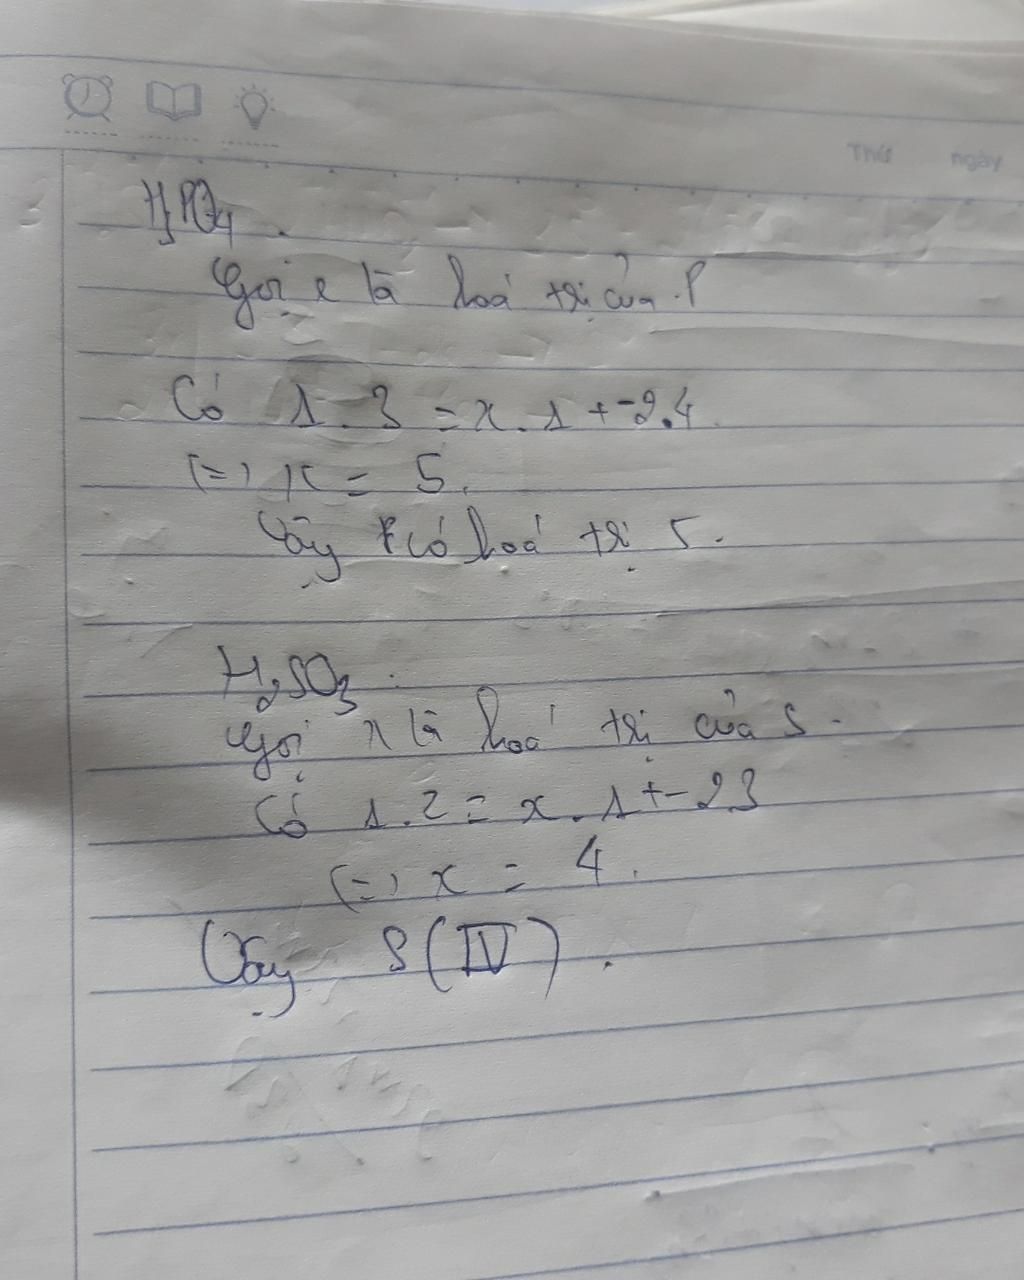 Thứ ngày
H3PO4.
Gọi x là hoá trị của P
Có 1.3 = x.1 + -2.4
(=) x = 5.
Vậy P có hoá trị 5.
H2SO3.
Gọi x là hoá trị của S.
Có 1.2 = x.1 + -2.3
(=) x = 4.
Vậy S (IV).